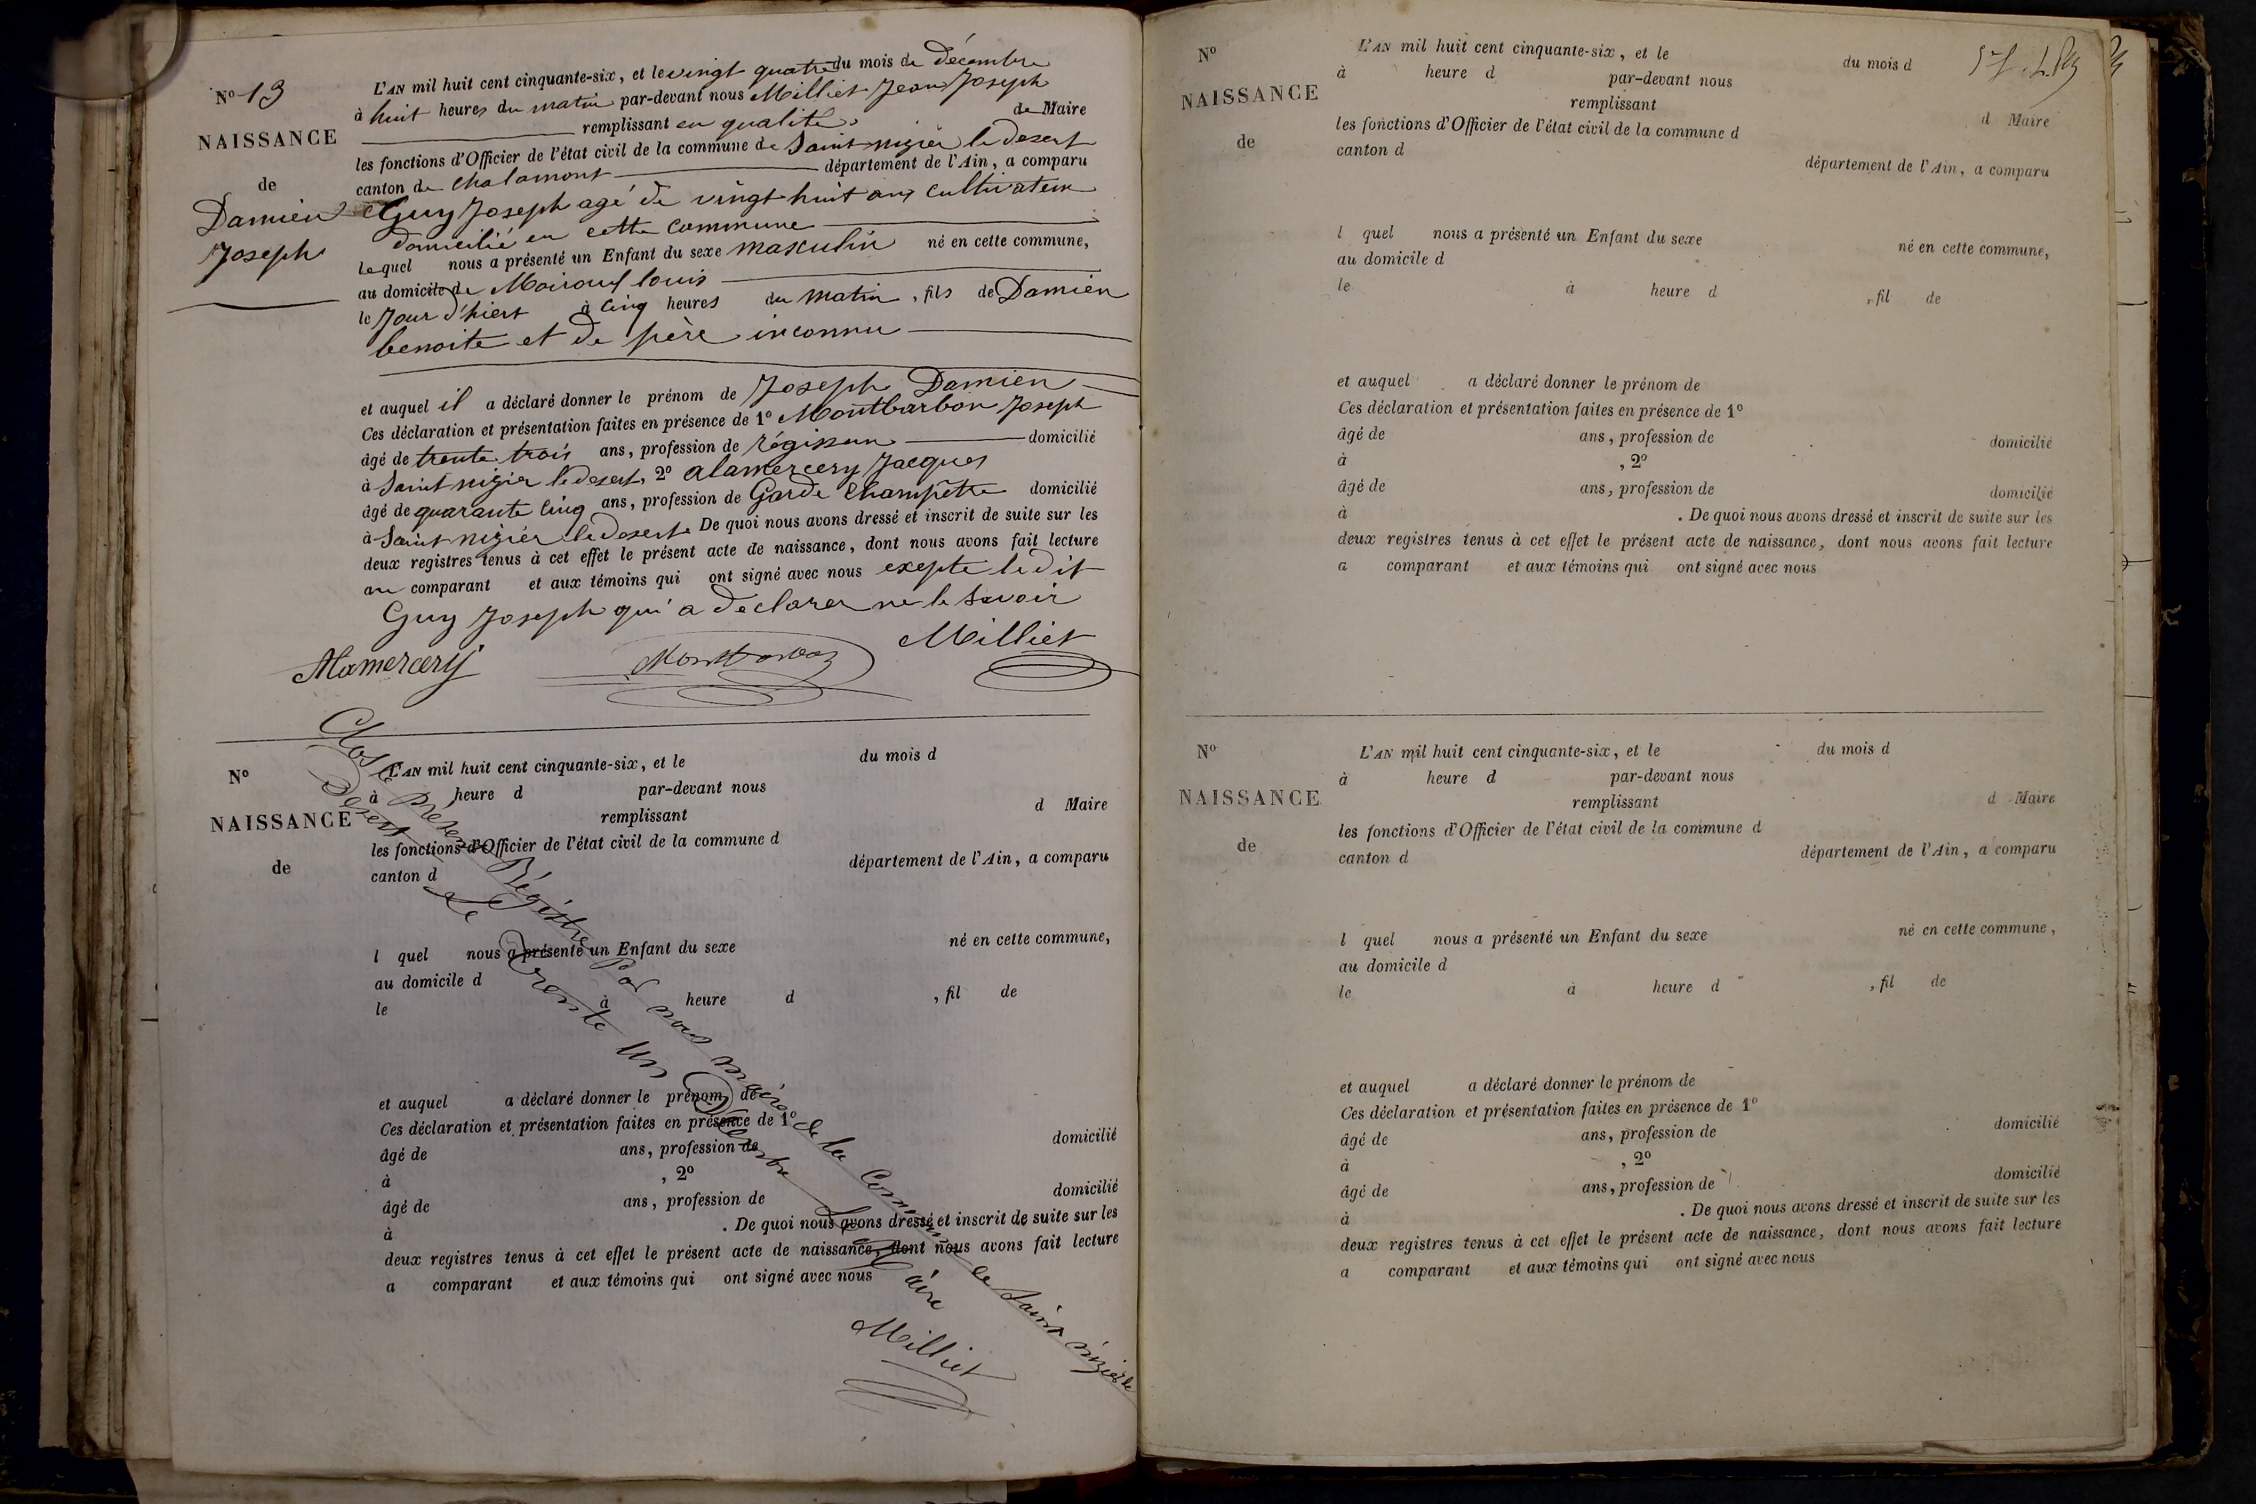 No 13
NAISSANCE
de
Damien
Joseph
L'AN mil huit cent cinquante-six, et le vingt quatre du mois de Décembre
à huit heures du matin par-devant nous Milliet Jean Joseph
remplissant en qualité de Maire
les fonctions d'Officier de l'état civil de la commune de Saint nizier le desert
canton de chalamont département de l'Ain, a comparu
Guy Joseph agé de vingt huit ans cultivateur
domicilié en cette commune
lequel nous a présenté un Enfant du sexe masculin né en cette commune,
au domicile de louis
le Jour d'hiert à cinq heures du matin, fils de Damien
benoite et de père inconnu
et auquel il a déclaré donner le prénom de Joseph Damien
Ces déclaration et présentation faites en présence de 1º Montbarbon Joseph
âgé de trente trois ans, profession de régisseur domicilié
à Saint nizier le desert, 2º alamercery Jacques
âgé de quarante cinq ans, profession de Garde Champêtre domicilié
à Saint nizier le desert De quoi nous avons dressé et inscrit de suite sur les
deux registres tenus à cet effet le présent acte de naissance, dont nous avons fait lecture
au comparant et aux témoins qui ont signé avec nous exepte le dit
Guy Joseph qui a declarer ne le savoir
Alamercery Montbarbon Milliet
Clos le présent Régistre par nous maire de la Commune de Saint nizier le
Desert le Trente un Décembre Le Maire
Milliet
No
NAISSANCE
de
L'AN mil huit cent cinquante-six, et le du mois d
à heure d par-devant nous
remplissant d Maire
les fonctions d'Officier de l'état civil de la commune d
canton d département de l'Ain, a comparu
l quel nous a présenté un Enfant du sexe né en cette commune,
au domicile d
le à heure d , fil de
et auquel a déclaré donner le prénom de
Ces déclaration et présentation faites en présence de 1º
âgé de ans, profession de domicilié
à , 2º
âgé de ans, profession de domicilié
à . De quoi nous avons dressé et inscrit de suite sur les
deux registres tenus à cet effet le présent acte de naissance, dont nous avons fait lecture
a comparant et aux témoins qui ont signé avec nous
No
NAISSANCE
de
L'AN mil huit cent cinquante-six, et le du mois d
à heure d par-devant nous
remplissant d Maire
les fonctions d'Officier de l'état civil de la commune d
canton d département de l'Ain, a comparu
l quel nous a présenté un Enfant du sexe né en cette commune,
au domicile d
le à heure d , fil de
et auquel a déclaré donner le prénom de
Ces déclaration et présentation faites en présence de 1º
âgé de ans, profession de domicilié
à , 2º
âgé de ans, profession de domicilié
à . De quoi nous avons dressé et inscrit de suite sur les
deux registres tenus à cet effet le présent acte de naissance, dont nous avons fait lecture
a comparant et aux témoins qui ont signé avec nous
No
NAISSANCE
de
L'AN mil huit cent cinquante-six, et le du mois d
à heure d par-devant nous
remplissant d Maire
les fonctions d'Officier de l'état civil de la commune d
canton d département de l'Ain, a comparu
l quel nous a présenté un Enfant du sexe né en cette commune,
au domicile d
le à heure d , fil de
et auquel a déclaré donner le prénom de
Ces déclaration et présentation faites en présence de 1º
âgé de ans, profession de domicilié
à , 2º
âgé de ans, profession de domicilié
à . De quoi nous avons dressé et inscrit de suite sur les
deux registres tenus à cet effet le présent acte de naissance, dont nous avons fait lecture
a comparant et aux témoins qui ont signé avec nous